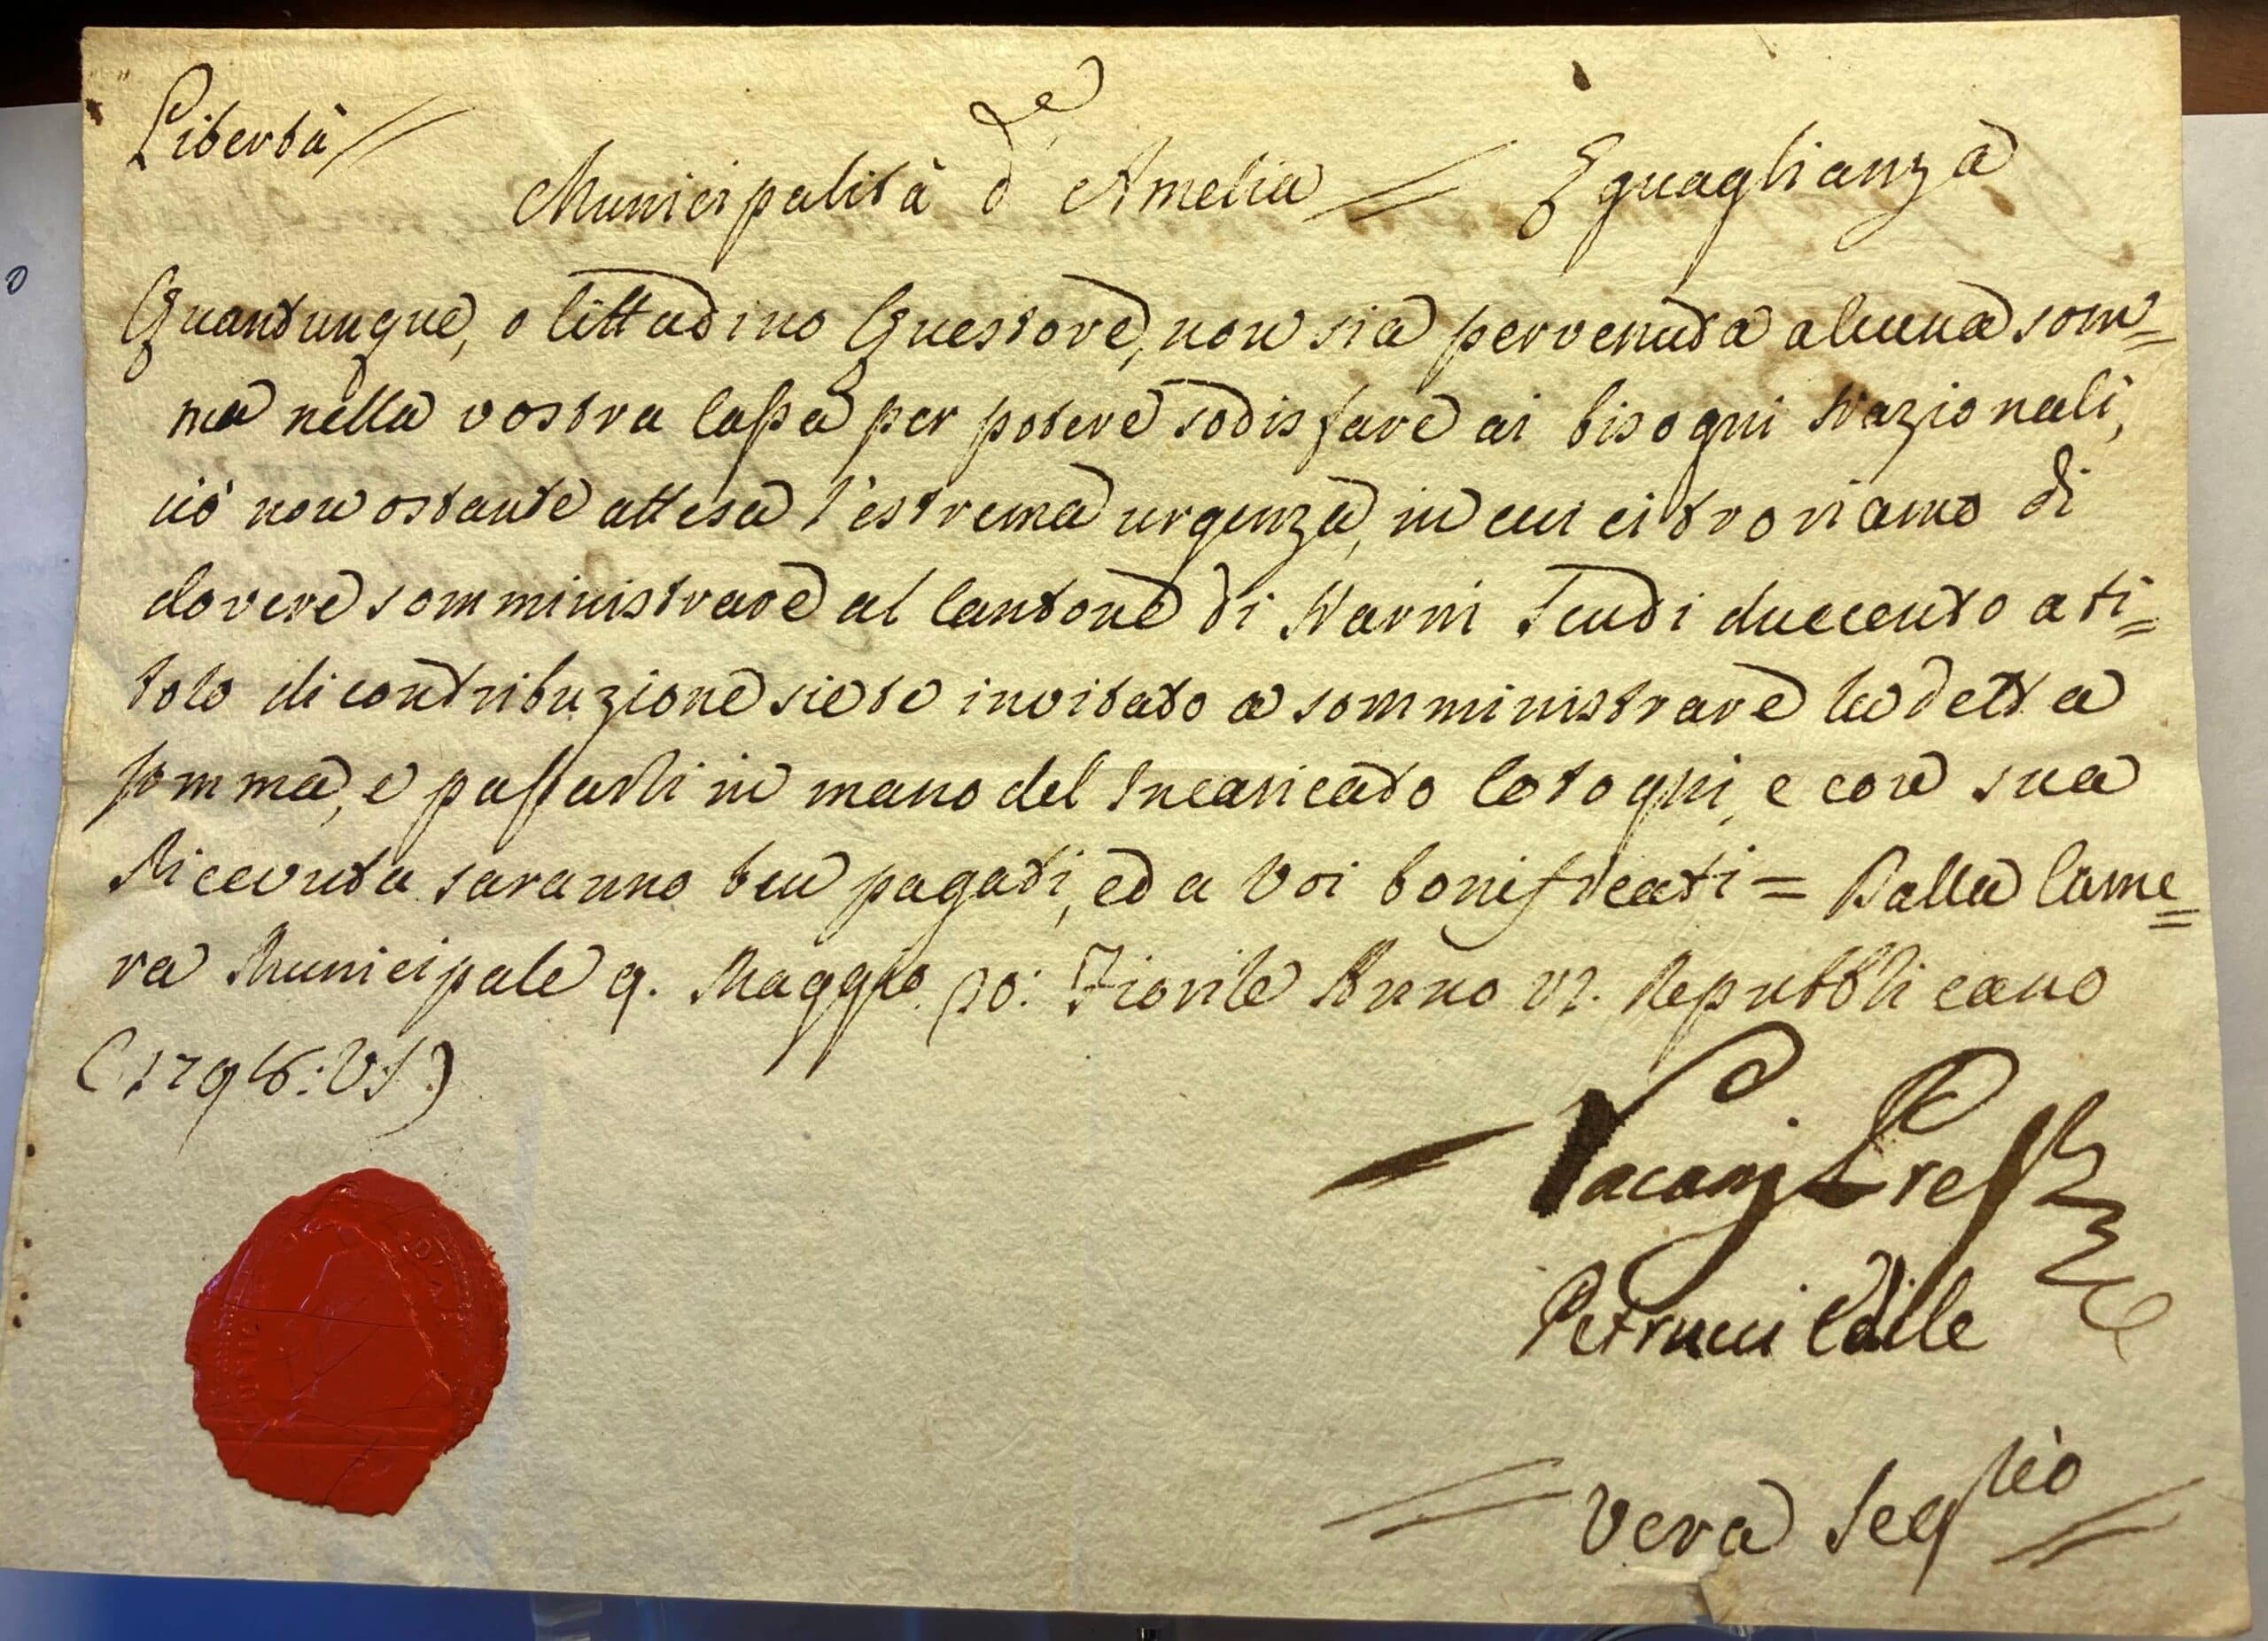 Libertà
Municipalità d'Amelia Eguaglianza
Quantunque, o Cittadino Questore, non sia pervenuta alcuna som=
ma nella vostra Cassa per potere sodisfare ai bisogni Nazionali,
ciò non ostante attesa l'estrema urgenza, in cui ci troviamo di
dovere somministrare al Cantone di Narni Scudi duecento a ti=
tolo di contribuzione siete invitato a somministrare la detta
somma, e passarli in mano del Incaricato Cotogni, e con sua
Ricevuta saranno ben pagati, ed a Voi bonificati = Dalla Came=
ra Municipale 9. Maggio (20: Fiorile Anno VI. Repubblicano
(1798: V:S:)
Vacani Pres
Petrucci Edile
Vera Seg.rio